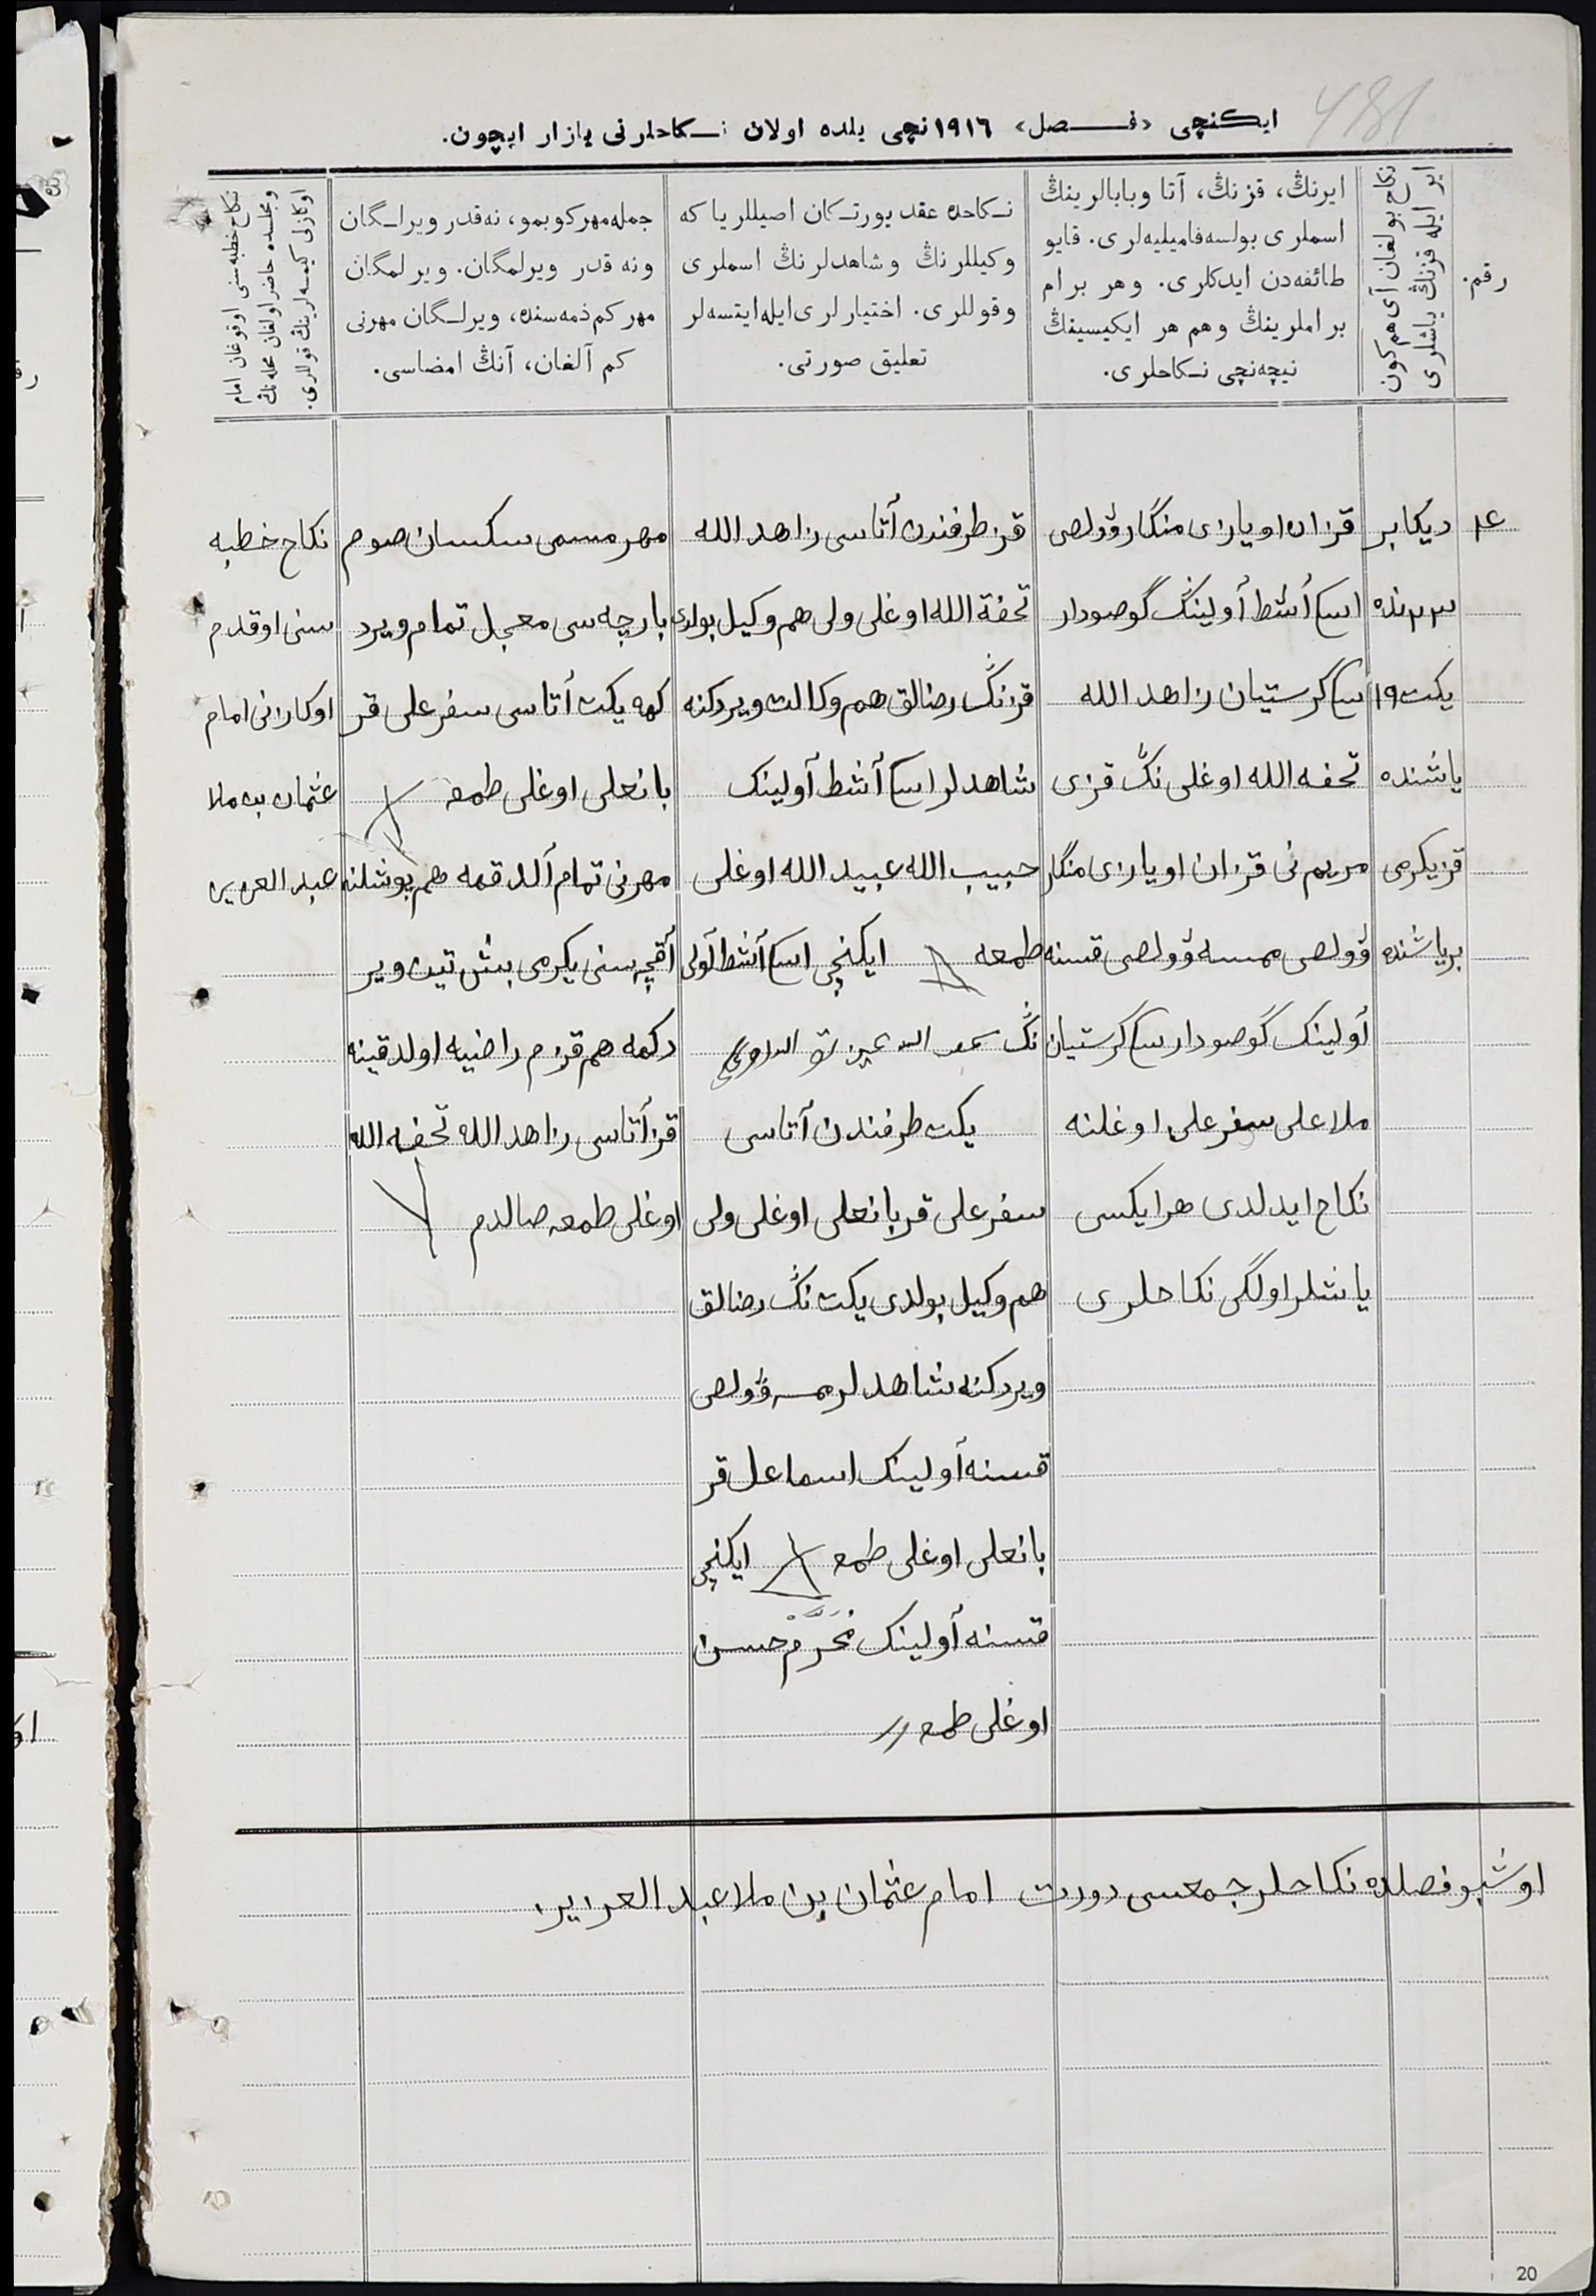 481
ایکنچی «فصل» ١٩١٦نچی یلده اولان نکاحلرنی یازار ایچون.
رقم.
نکاح بولغان آی هم کون
ایر ایله قزنڭ یاشلری
ایرنڭ، قزنڭ، آتا وبابالرینڭ
اسملری بولسه فامیلیه‌لری. قایو
طائفه‌دن ایدکلری. وهر برام
براملرینڭ وهم هر ایکیسینڭ
نیچه‌نچی نکاحلری.
نکاحده عقد یورتکان اصیللر یا که
وکیللرنڭ وشاهدلرنڭ اسملری
وقوللری. اختیارلری ایله ایتسه‌لر
تعلیق صورتی.
جمله مهر کوبمو، نه‌قدر ویرلگان
ونه قدر ویرلمگان. ویرلمگان
مهر کم ذمه‌سنده، ویرلگان مهرنی
کم آلغان، آنڭ امضاسی.
نکاح خطبه‌سنی اوقوغان امام
ومجلسده حاضر اولغان محله‌نڭ
اوکازنی کیمسه‌لرینڭ قوللری.
٤
دیکابر
٢٣نده
یکت ١٩
یاشنده
قز یکرمی
بر یاشنده
قزان اویازی منگار ۋولصی
اسکی أشط أولینڭ گوصودار
سکی کرستیان زاهد الله
تحفه الله اوغلی نڭ قزی
مریم نی قزان اویازی منگار
ۋولصی ممسه ۋولصی قسنه
أولینک گوصودار سکی کرستیان
ملا علی سفر علی اوغلنه
نکاح ایدلدی هر ایکسی
یاشلر اولگی نکاحلری
قز طرفندن أتاسی زاهد الله
تحفة الله اوغلی ولی هم وکیل بولدی
قزنڭ رضالق هم وکالت ویردکنه
شاهدلر اسکی أشط أولینک
حبیب الله عبید الله اوغلی
طمعه ایکنچی اسکی أشط أولی
نڭ
یکت طرفندن أتاسی
سفر علی قربانعلی اوغلی ولی
هم وکیل بولدی یکت نڭ رضالق
ویردکنه شاهدلر ممسه ۋولصی
قسنه أولینک اسماعل قر
بانعلی اوغلی طمعه ایکنچی
قسنه أولینک محرم حسن
اوغلی طمعه
مهر مسمی سکسان صوم
بارچه سی معجل تمام ویرد
کمه یکت أتاسی سفر علی قر
بانعلی اوغلی طمعه
مهرنی تمام ألدقمه هم بوشلنه
أقچه سنی یکرمی بش تین ویر
دکمه هم قزم راضیه اولدقینه
قز أتاسی زاهد الله تحفه الله
اوغلی طمعه صالدم
نکاح خطبه
سنی اوقدم
اوکازنی امام
عثمان بن ملا
عبد العزیز
اوشبو فصلده نکاحلر جمعسی دورت امام عثمان بن ملا عبد العزیز
20